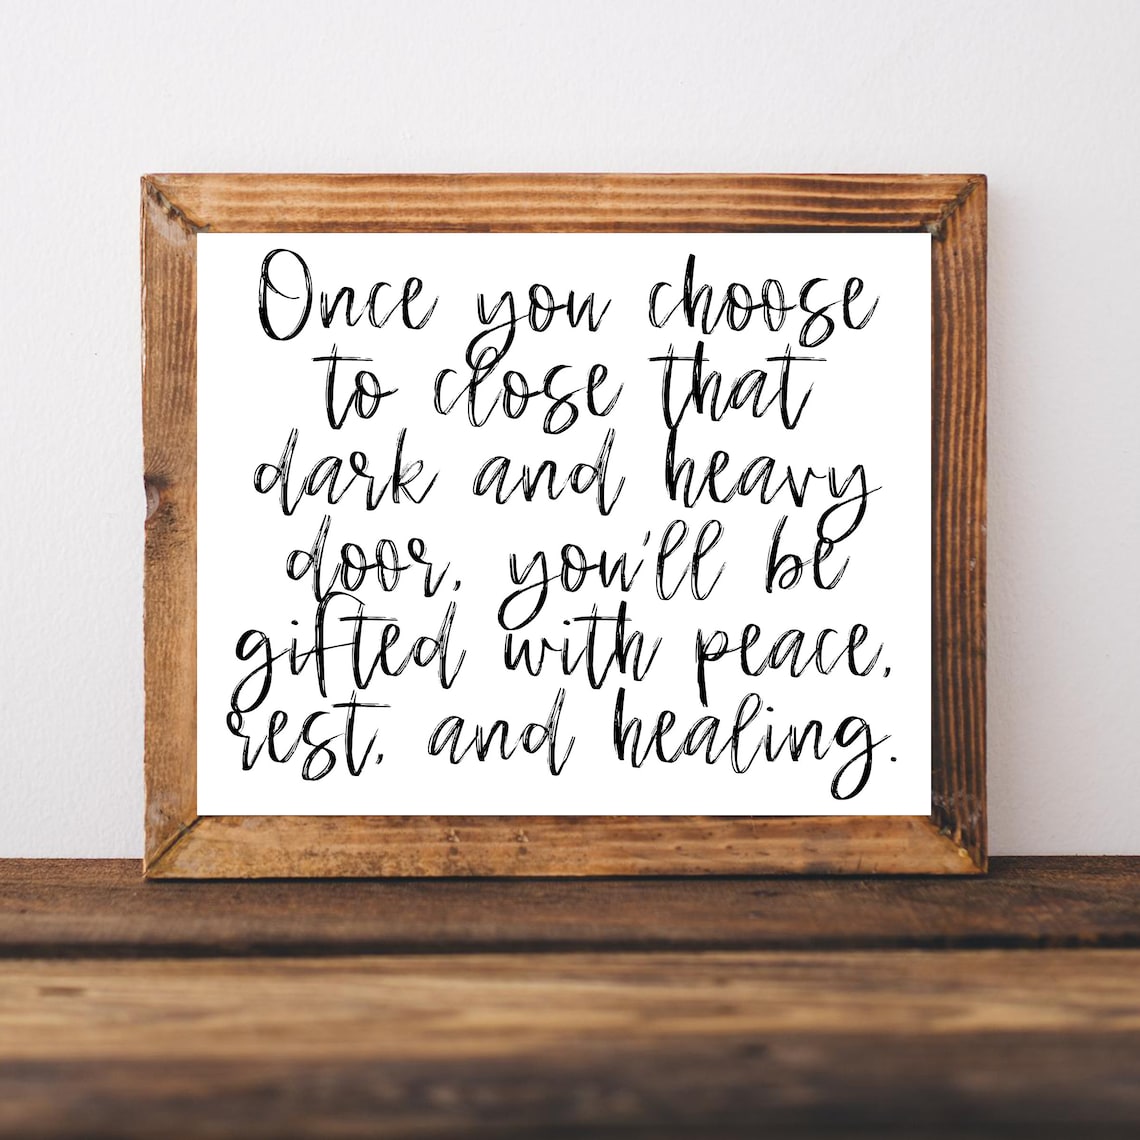 Once you choose
to close that
dark and heavy
door, you'll be
gifted with peace,
rest, and healing.